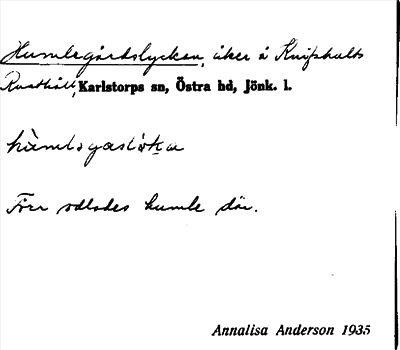 Humlegårdslyckan, åker å Knifshults
Rusthåll, Karlstorps sn, Östra hd, Jönk. l.
Förr odlades humle där.
Annalisa Anderson 1935